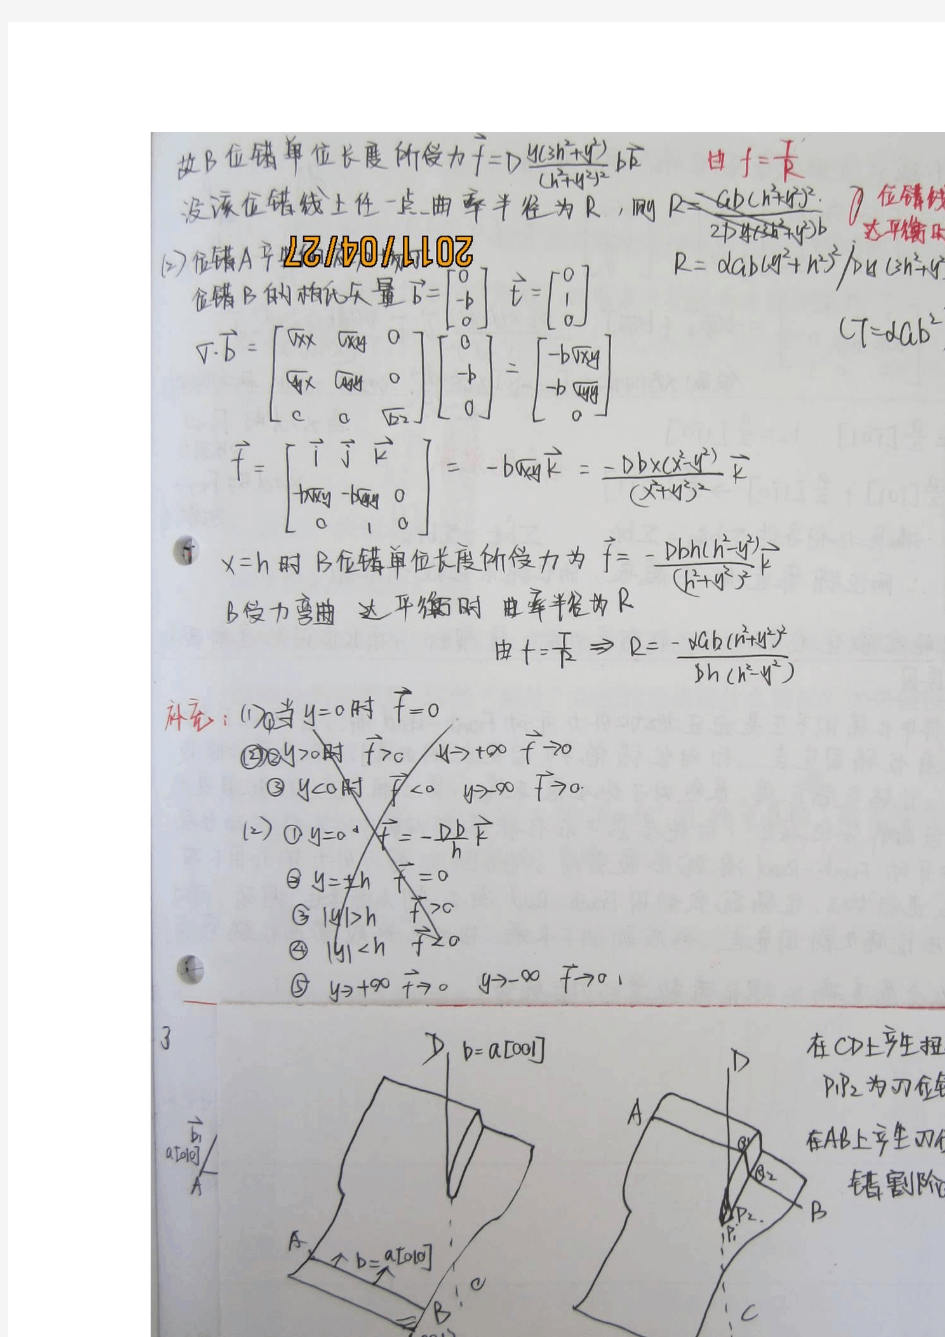 故B位错单位长度所受力 f⃗=D y(3h²+y²)/(h²+y²)² b k⃗ 由 f=T/R
设该位错线上任一点曲率半径为R,则 R= Gb(h²+y²)²/2Dy(3h²+y²)b 位错线
达平衡时
R=αGb(y²+h²)²/Dy(3h²+y²
(2) 位错A产生的
2011/04/27
位错B的柏氏矢量 b⃗=[0 -b 0] t⃗=[0 1 0]
(T=αGb²
σ·b⃗ = [σxx σxy 0 σyx σyy 0 0 0 σzz] [0 -b 0] = [-bσxy -bσyy 0]
f⃗ = [i⃗ j⃗ k⃗ -bσxy -bσyy 0 0 1 0] = -bσxy k⃗ = -Dbx(x²-y²)/(x²+y²)² k⃗
x=h时 B位错单位长度所受力为 f⃗= -Dbh(h²-y²)/(h²+y²)² k⃗
B受力弯曲 达平衡时 曲率半径为R
由 f=T/R ⇒ R= αGb(h²+y²)²/Dh(h²-y²)
补充: (1)①当y=0时 f⃗=0
②y>0时 f⃗>0 y→+∞ f⃗→0
③ y<0时 f⃗<0 y→-∞ f⃗→0
(2) ①y=0 f⃗=-Db/h k⃗
② y=±h f⃗=0
③ |y|>h f⃗>0
④ |y|<h f⃗<0
⑤ y→+∞ f⃗→0 y→-∞ f⃗→0
3
D b=a[001]
在CD上产生扭
D
P1P2为刃位错
A
b⃗1
a[010]
A
在AB上产生刃位
错割阶
Q1
Q2
P2
P1
B
A
b=a[010]
C
B
C